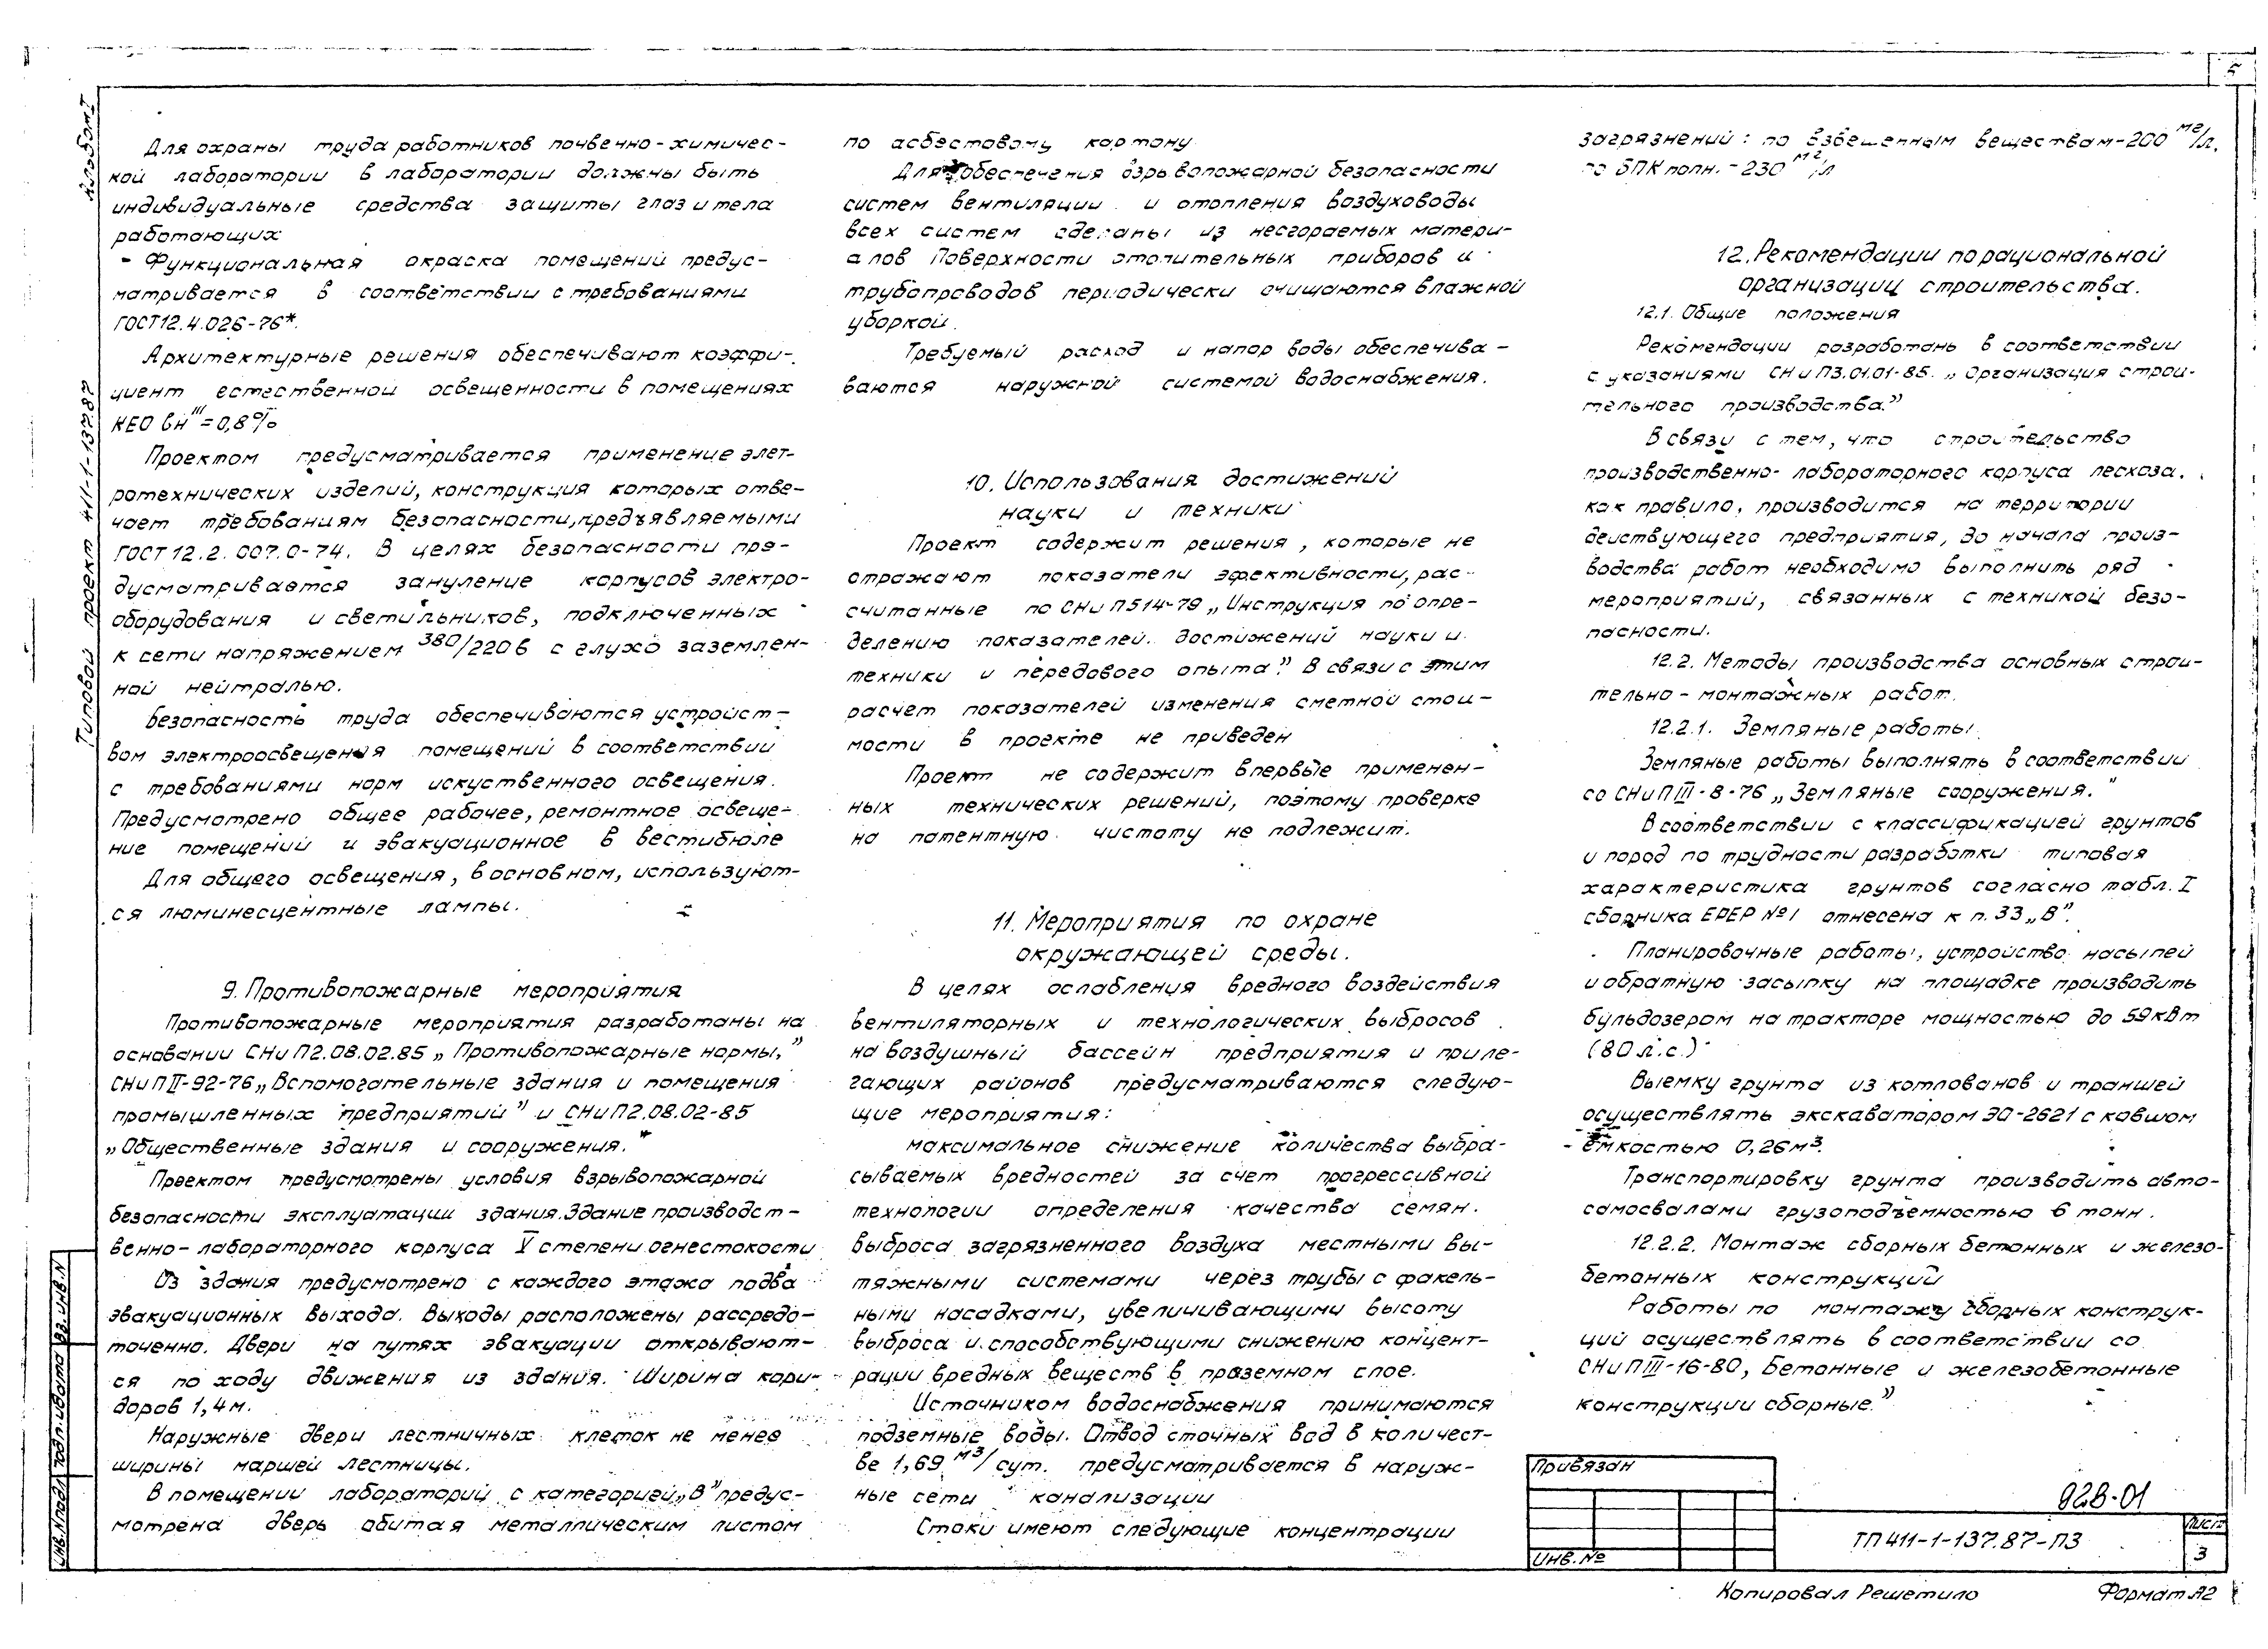 5
Альбом I
Типовой проект 411-1-137.87
Для охраны труда работников почвенно-химичес-
кой лаборатории в лаборатории должны быть
индивидуальные средства защиты глаз и тела
работающих
- Функциональная окраска помещений предус-
матривается в соответствии с требованиями
ГОСТ 12.4.026-76*.
Архитектурные решения обеспечивают коэффи-
циент естественной освещенности в помещениях
КЕО ен III = 0,8%
Проектом предусматривается применение элет-
ротехнических изделий, конструкция которых отве-
чает требованиям безопасности, предъявляемыми
ГОСТ 12.2.007.0-74. В целях безопасности пре-
дусматривается зануление корпусов электро-
оборудования и светильников, подключенных
к сети напряжением 380/220в с глухо заземлен-
ной нейтралью.
Безопасность труда обеспечиваются устройст-
вом электроосвещения помещений в соответствии
с требованиями норм искуственного освещения.
Предусмотрено общее рабочее, ремонтное освеще-
ние помещений и эвакуационное в вестибюле
Для общего освещения, в основном, используют-
ся люминесцентные лампы.
9. Противопожарные мероприятия
Противопожарные мероприятия разработаны на
основании СНиП2.08.02.85 „Противопожарные нормы,”
СНиПII-92-76 „Вспомогательные здания и помещения
промышленных предприятий” и СНиП2.08.02-85
„Общественные здания и сооружения.”
Проектом предусмотрены условия взрывопожарной
безопасности эксплуатации здания. Здание производст-
венно-лабораторного корпуса V степени огнестокости
Из здания предусмотрено с каждого этажа по два
эвакуационных выхода. Выходы расположены рассредо-
точенно. Двери на путях эвакуации открывают-
ся по ходу движения из здания. Ширина кори-
доров 1,4м.
Наружные двери лестничных клеток не менее
ширины маршей лестницы.
В помещении лабораторий с категорией „В” предус-
мотрена дверь обитая металлическим листом
по асбестовому картону
Для обеспечения взрывопожарной безопасности
систем вентиляции и отопления воздуховоды
всех систем сделаны из несгораемых матери-
алов Поверхности отопительных приборов и
трубопроводов периодически очищаются влажной
уборкой.
Требуемый расход и напор воды обеспечива-
ваются наружной системой водоснабжения.
10. Использования достижений
науки и техники
Проект содержит решения, которые не
отражают показатели эфективности, рас-
считанные по СНиП514-79 „Инструкция по опре-
делению показателей достижений науки и
техники и передового опыта”. В связи с этим
расчет показателей изменения сметной стои-
мости в проекте не приведен
Проект не содержит впервые применен-
ных технических решений, поэтому проверке
на патентную чистоту не подлежит.
11. Мероприятия по охране
окружающей среды.
В целях ослабления вредного воздействия
вентиляторных и технологических выбросов
на воздушный бассейн предприятия и приле-
гающих районов предусматриваются следую-
щие мероприятия:
максимальное снижение количества выбра-
сываемых вредностей за счет прогрессивной
технологии определения качества семян.
выброса загрязненного воздуха местными вы-
тяжными системами через трубы с факель-
ными насадками, увеличивающими высоту
выброса и способствующими снижению концент-
рации вредных веществ в приземном слое.
Источником водоснабжения принимаются
подземные воды. Отвод сточных вод в количест-
ве 1,69 м3/сут. предусматривается в наруж-
ные сети канализации
Стоки имеют следующие концентрации
загрязнений: по взвешенным веществам-200 мг/л,
по БПК полн.-230 мг/л
12. Рекомендации по рациональной
организации строительства.
12.1. Общие положения
Рекомендации разработаны в соответствии
с указаниями СНиП3.01.01-85. „Организация строи-
тельного производства.”
В связи с тем, что строительство
производственно-лабораторного корпуса лесхоза,
как правило, производится на территории
действующего предприятия, до начала произ-
водства работ необходимо выполнить ряд
мероприятий, связанных с техникой безо-
пасности.
12.2. Методы производства основных строи-
тельно-монтажных работ.
12.2.1. Земляные работы.
Земляные работы выполнять в соответствии
со СНиПIII-8-76 „Земляные сооружения.”
В соответствии с классификацией грунтов
и пород по трудности разработки типовая
характеристика грунтов согласно табл. I
сборника ЕРЕР №1 отнесена к п. 33 „В”.
Планировочные работы, устройство насыпей
и обратную засыпку на площадке производить
бульдозером на тракторе мощностью до 59квт
(80л.с.)
Выемку грунта из котлованов и траншей
осуществлять экскаватором ЭО-2621 с ковшом
емкостью 0,26м3.
Транспортировку грунта производить авто-
самосвалами грузоподъемностью 6 тонн.
12.2.2. Монтаж сборных бетонных и железо-
бетонных конструкций
Работы по монтажу сборных конструк-
ций осуществлять в соответствии со
СНиПIII-16-80, Бетонные и железобетонные
конструкции сборные.”
Привязан
Инв. №
928-01
ТП 411-1-137.87-ПЗ
Лист
3
Копировал Решетило
Формат А2
Инв.N подл. Подп. и дата Вз. инв. N